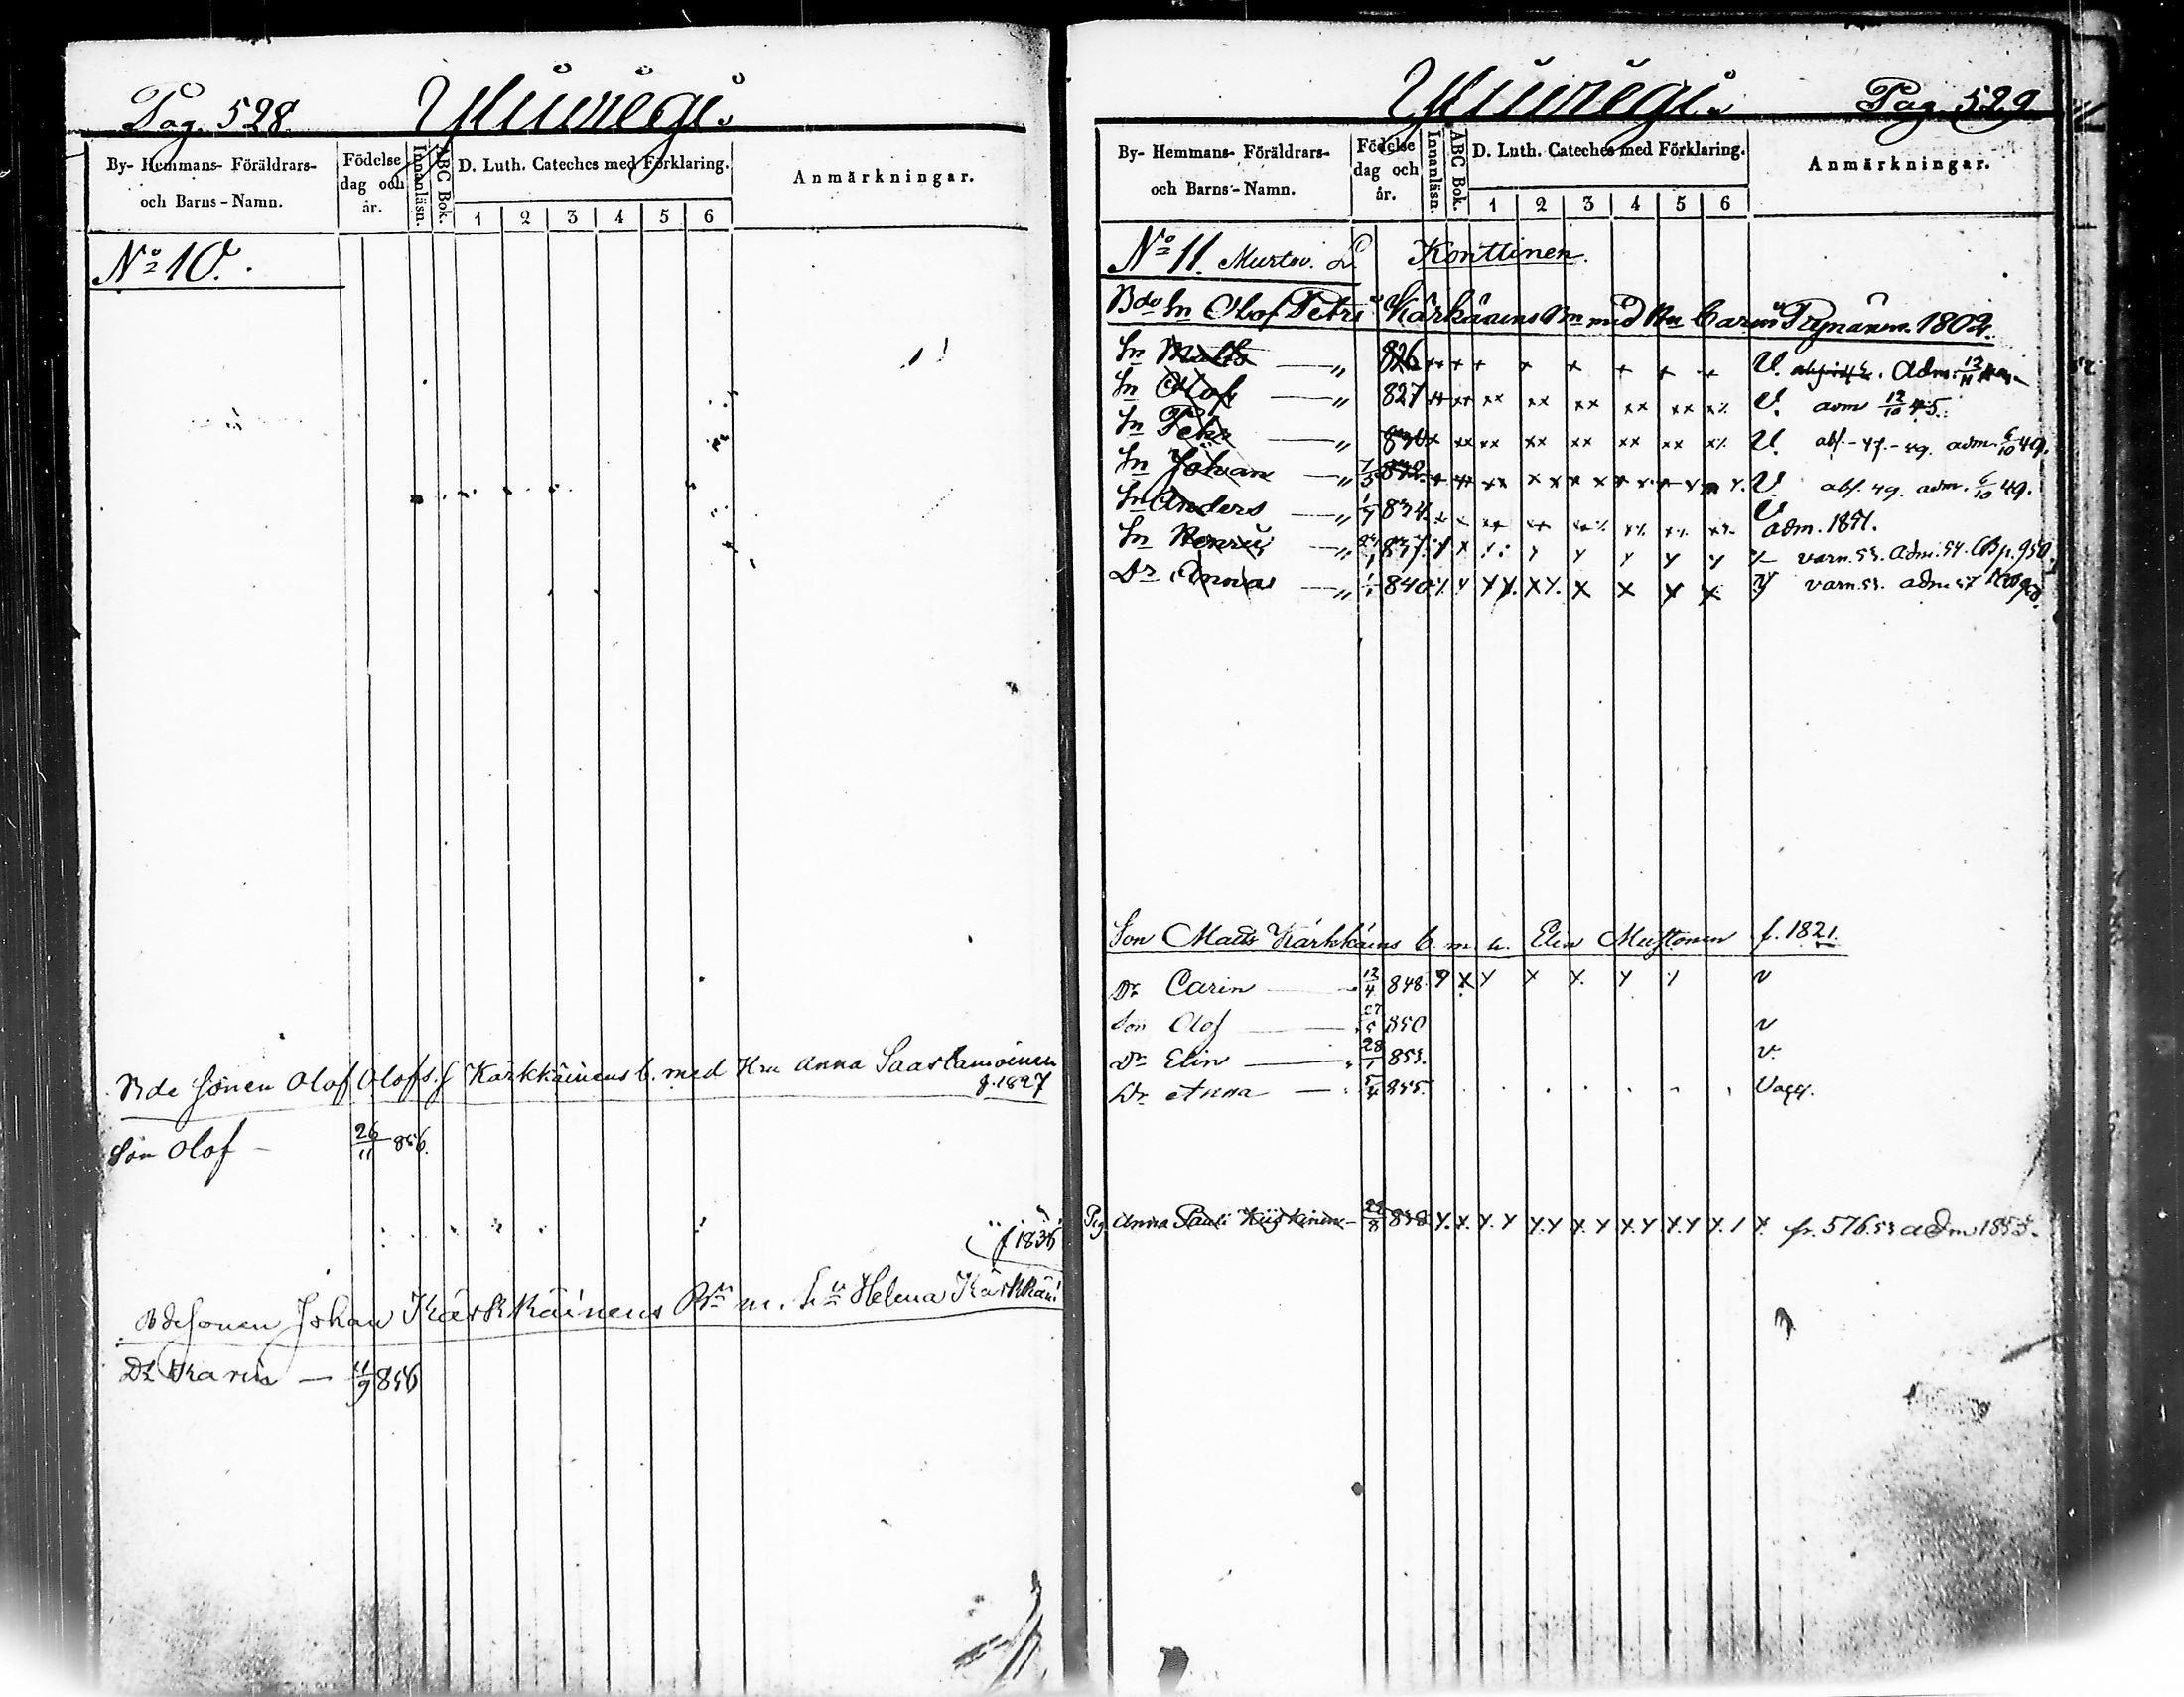 Pag. 528. Yliwregi.
By- Hemmans- Föräldrars- och Barns-Namn.
Födelse dag och år.
Innanläsn.
ABC Bok.
D. Luth. Cateches med Förklaring.
1 2 3 4 5 6
Anmärkningar.
No 10.
Bde sonen Olof Olofs. s Kärkkäinens b. med Hru Anna Saastamoinen
f. 1827
Son Olof – 26/11 856.
f 1836
Bdesonen Johan Kärkkäinens Bn m. hu Helena Kärkkäi
Dr Karin — 11/9 856
Yliwregi. Pag. 529
By- Hemmans- Föräldrars- och Barns-Namn.
Födelse dag och år.
Innanläsn.
ABC Bok.
D. Luth. Cateches med Förklaring.
1 2 3 4 5 6
Anmärkningar.
No 11. Konttinen.
Bde Sn Olof Petri Kärkäinens Bn med Hu Carin 1802.
Sn Matts — " 826 + + + + + + + + + U. Adm. 12/11
Sn Olof — " 827 xx xx xx xx xx xx x% U. adm 12/10 45.
Sn Petr — " xx xx xx xx xx xx x% U. abs.-47.-49. adm. 6/10 49.
Sn Johan — " U. abs. 49. adm. 6/10 49.
Sn Anders — " 834. U adm. 1851.
Sn Henric — " 837. varn. 53. Adm. 54. p. 950.
Dr Anna — " 1/1 840 varn. 53. adm. 57
Son Matts Kärkkäins b. m. h. Elin Mustonen f. 1821.
Dr Carin — 12/4 848. y x y x x. y y v
Son Olof — 27/5 850 v
Dr Elin — 28/1 853. v.
Dr Anna — 5/4 855. Vagg.
Pig Anna Pauli Kiiskinen – fr. 576. 53 adm 1853.